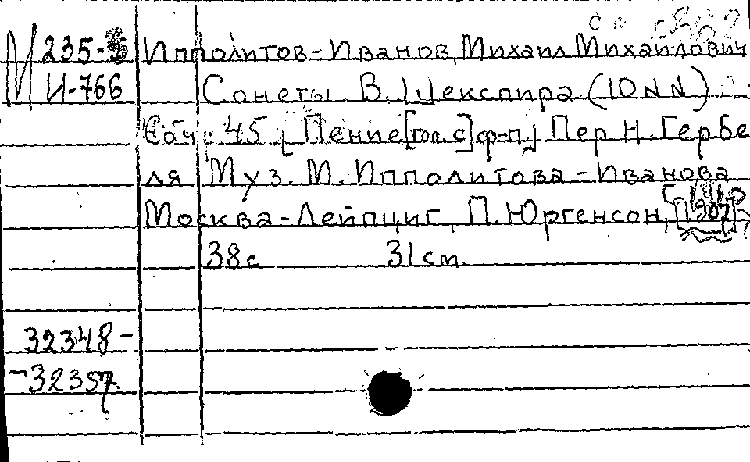 М 235-3 Ипполитов-Иванов, Михаил Михайлович
И-766 Сонеты В. Шекспира (10 NN)
Соч. 45 [Пение [гол. с] ф-п.] Пер Н. Гербе
ля Муз. М. Ипполитова-Иванова
Москва-Лейпциг, П. Юргенсон,
38 с 31 см.
32348-
-32357.